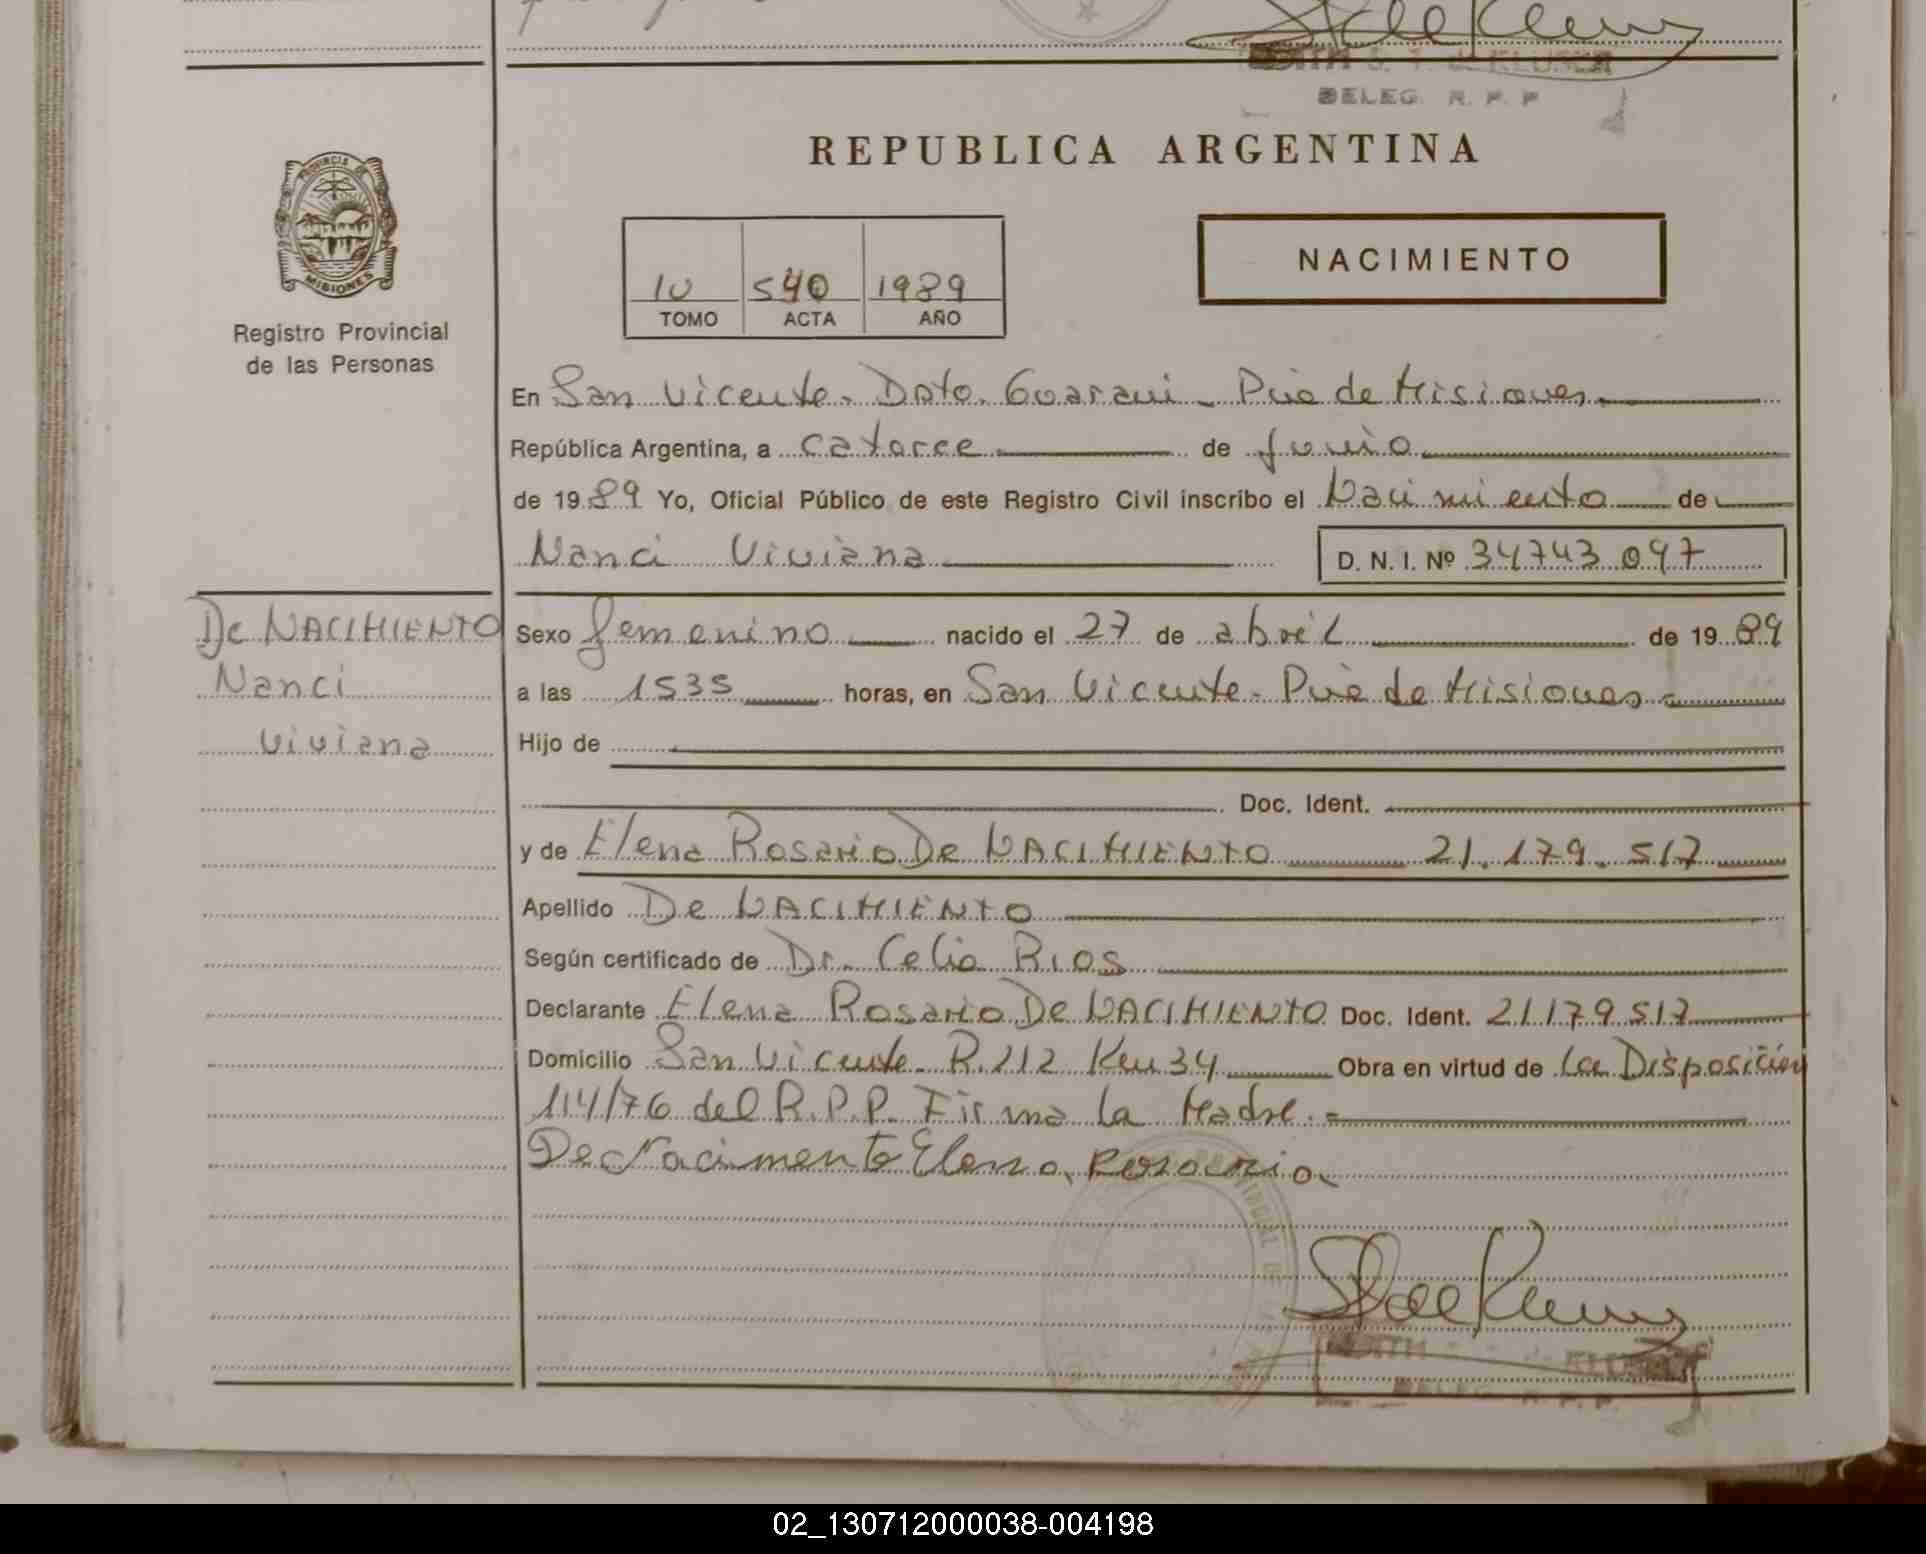 DELEG. R. P. P
REPUBLICA ARGENTINA
PROVINCIA DE
MISIONES
Registro Provincial
de las Personas
NACIMIENTO
540 1989
TOMO ACTA AÑO
En San Vicente. Dpto. Guarani. Pcia de Misiones
República Argentina, a catorce de Junio
de 1989 Yo, Oficial Público de este Registro Civil inscribo el Nacimiento de
Nanci Viviana D. N. I. Nº 34743.097
De NACIMIENTO
Nanci
Viviana
Sexo femenino nacido el 27 de abril de 1989
a las 1535 horas, en San Vicente. Pcia de Misiones
Hijo de
Doc. Ident.
y de Elena Rosario De NACIMIENTO 21.179.517
Apellido De NACIMIENTO
Según certificado de Dr. Celio Rios
Declarante Elena Rosario De NACIMIENTO Doc. Ident. 21179517
Domicilio San Vicente. R.212 Km 34 Obra en virtud de La Disposición
114/76 del R.P.P. Firma la Madre.
De Nacimento Elena Rosario
DELEG. R. P. P.
02_130712000038-004198